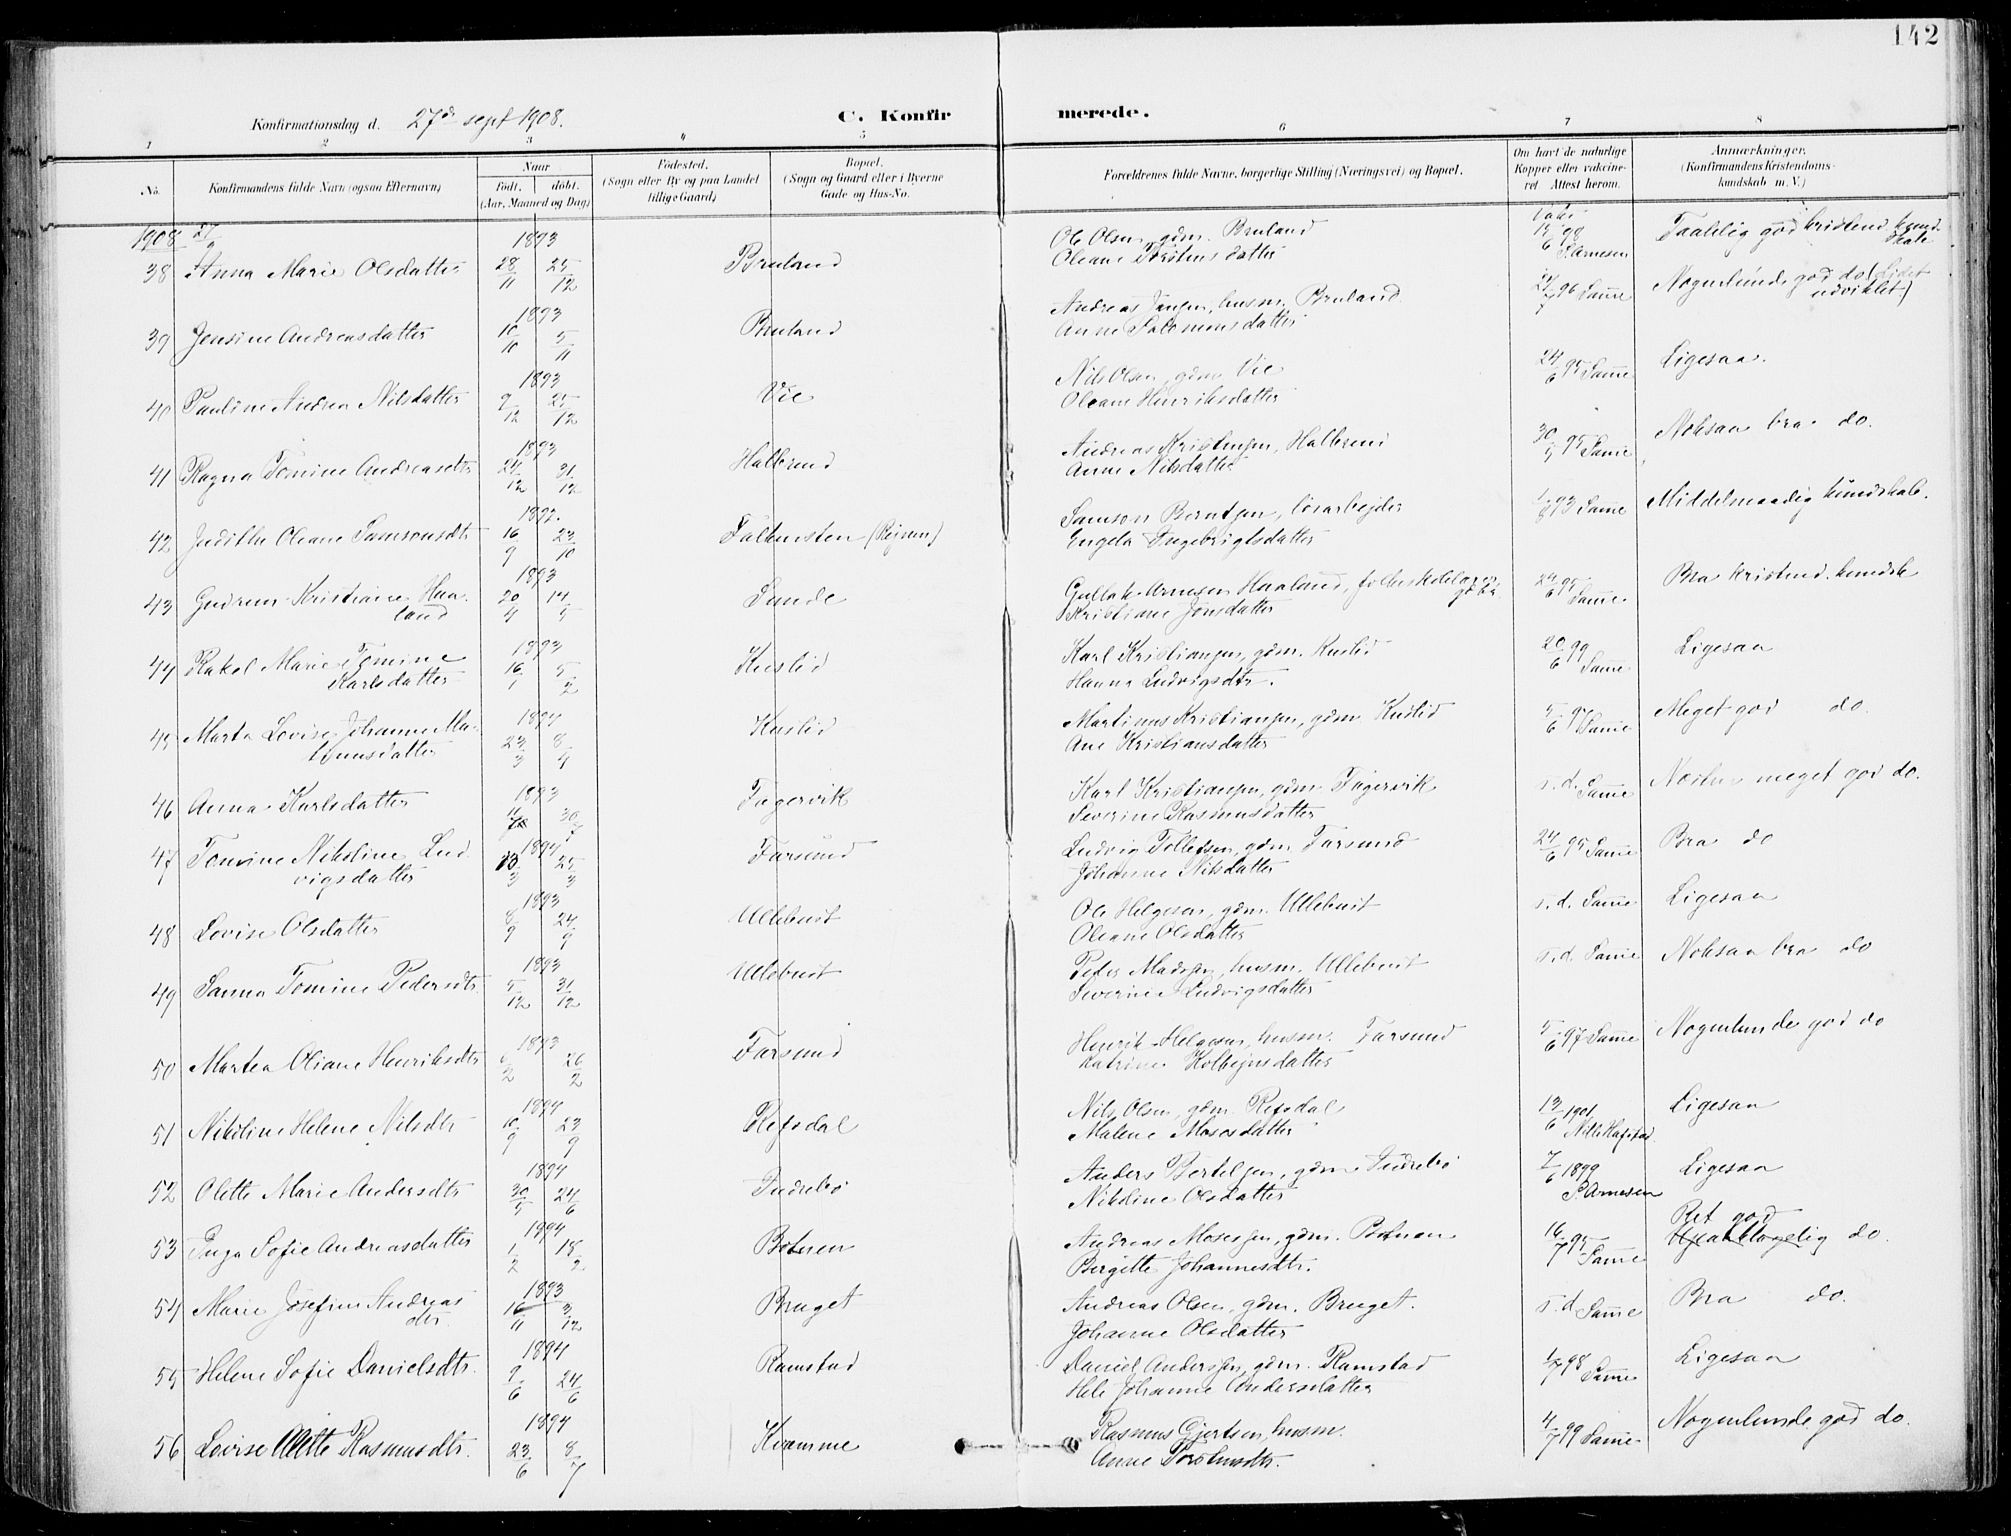 142
Konfirmationsdag d. 27de sept 1908.
C. Konfirmerede.
1 2 3 4 5 6 7 8
No.
Konfirmandens fulde Navn (ogsaa Efternavn)
Naar
født. døbt.
(Aar, Maaned og Dag)
Fødested.
(Sogn eller By og paa Landet tillige Gaard)
Bopæl.
(Sogn og Gaard eller i Byerne Gade og Hus-No.
Forældrenes fulde Navne, borgerlige Stilling (Næringsvei) og Bopæl.
Om havt de naturlige Kopper eller vakcineret. Attest herom.
Anmærkninger.
(Konfirmandens Kristendomskundskab m. V.)
1908 27/9
38 Anna Marie Olsdatter 1893 28/11 25/12 Bruland Ole Olsen, gdm. Bruland
Oleane Torstensdatter 15/6 98 P. Arnesen Taalelig god kristend. kundskab
39 Jensine Andreasdatter 1893 10/10 5/11 Bruland Andreas Jensen, husm. Bruland
Anne Salomonsdatter 24/7 96 Samme Nogenlunde god do (Lidet udviklet)
40 Pauline Andrea Nilsdatter 1893 9/12 25/12 Vie Nils Olsen, gdm. Vie
Oleane Henriksdatter 24/6 95 Samme Ligesaa.
41 Ragna Tomine Andreasdtr 1893 24/12 31/12 Halbrend Andreas Kristensen, Halbrend
Anne Nilsdatter 30/ 95 Samme Noksaa bra do.
42 Judithe Oleane Samsonsdtr 16/9 23/10 Falkensten Samson Berntsen, løsarbejder
Engela Ingebrigtsdatter 93 Samme Middelmaadig kundskab.
43 Gudrun Kristiane Haaland 1893 20/4 14/5 Sunde Gullak Arnesen Haaland,
Kristiane Jonsdatter 24/6 95 Samme. Bra kristend. kundsk
44 Rakel Marie Tomine Karlsdatter 1893 16/1 5/2 Kuslid Karl Kristiansen, gdm. Kuslid
Hanna Ludvigsdtr. 20/6 99 Samme Ligesaa
45 Marta Lovise Johanne Martinusdatter 1894 23/3 8/4 Kuslid Martinus Kristiansen, gdm Kuslid
Ane Kristiansdatter 5/6 97 Samme Meget god do.
46 Anna Karlsdatter 1893 30/7 Fagervik Karl Kristiansen, gdm. Fagervik
Severine Rasmusdatter s. d. Samme Næsten meget god do.
47 Tomine Nikoline Ludvigsdatter 1894 13/3 25/3 Farsund Ludvig Tollefsen, gdm Farsund
Johanne Nilsdatter 24/6 95 Samme Bra do
48 Lovise Olsdatter 1893 8/9 24/9 Ullebust Ole Helgesen, gdm. Ullebust
Oleane Olsdatter s. d. Samme Ligesaa
49 Sanna Tomine Pedersdtr. 1893 5/12 31/12 Ullebust Peder Madsen, husm. Ullebust
Severine Ludvigsdatter s. d. Samme Noksaa bra do
50 Martea Oliane Henriksdtr 1893 6/2 26/2 Farsund Henrik Helgesen, husm. Farsund
Katrine Kolbejnsdatter 5/6 97 Samme Nogenlunde god do
51 Nikoline Helene Nilsdtr 1894 10/9 23/9 Refsdal Nils Olsen, gdm. Refsdal
Malene Mosesdatter 13/6 1901 Ligesaa
52 Olette Marie Andersdtr 1894 30/5 24/6 Indrebø Anders Bertelsen, gdm. Indrebø
Nikoline Olsdatter 7/6 1899 P Arnesen Ligesaa
53 Inga Sofie Andreasdatter 1894 1/2 18/2 Botnen Andreas Mosesen, gdm. Botnen
Birgitte Johannesdtr. 16/7 95 Samme Ret god do.
54 Marie Josefine Andreasdtr. 1893 16/11 3/12 Bruget Andreas Olsen, gdm. Bruget.
Johanne Olsdatter s. d Samme Bra do.
55 Helene Sofie Danielsdtr. 1894 9/6 24/6 Ramstad Daniel Andersen, gdm. Ramstad
Johanne Andersdatter 98 Samme Ligesaa
56 Lovise Olette Rasmusdtr. 1894 23/6 8/7 Kvamme Rasmus Gjertsen, husm.
Anne Torstensdtr. 4/7 99 Samme Nogenlunde god do.